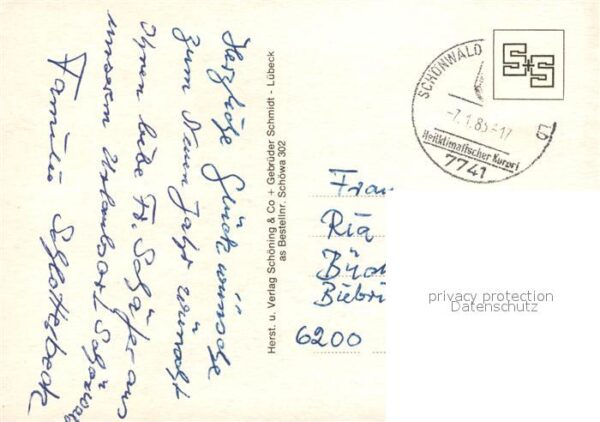 Herzliche Glückwünsche
zum Neuen Jahr wünscht
Ihnen liebe Fr. Schäfer aus
unserem Urlaubsort Schönwald
Familie
Herst. u. Verlag Schöning & Co + Gebrüder Schmidt - Lübeck
as Bestellnr. Schöwa 302
S+S
SCHÖNWALD
-7.1.85-17
Heilklimatischer Kurort
7741
Frau
Ria
Biebri
6200
privacy protection
Datenschutz